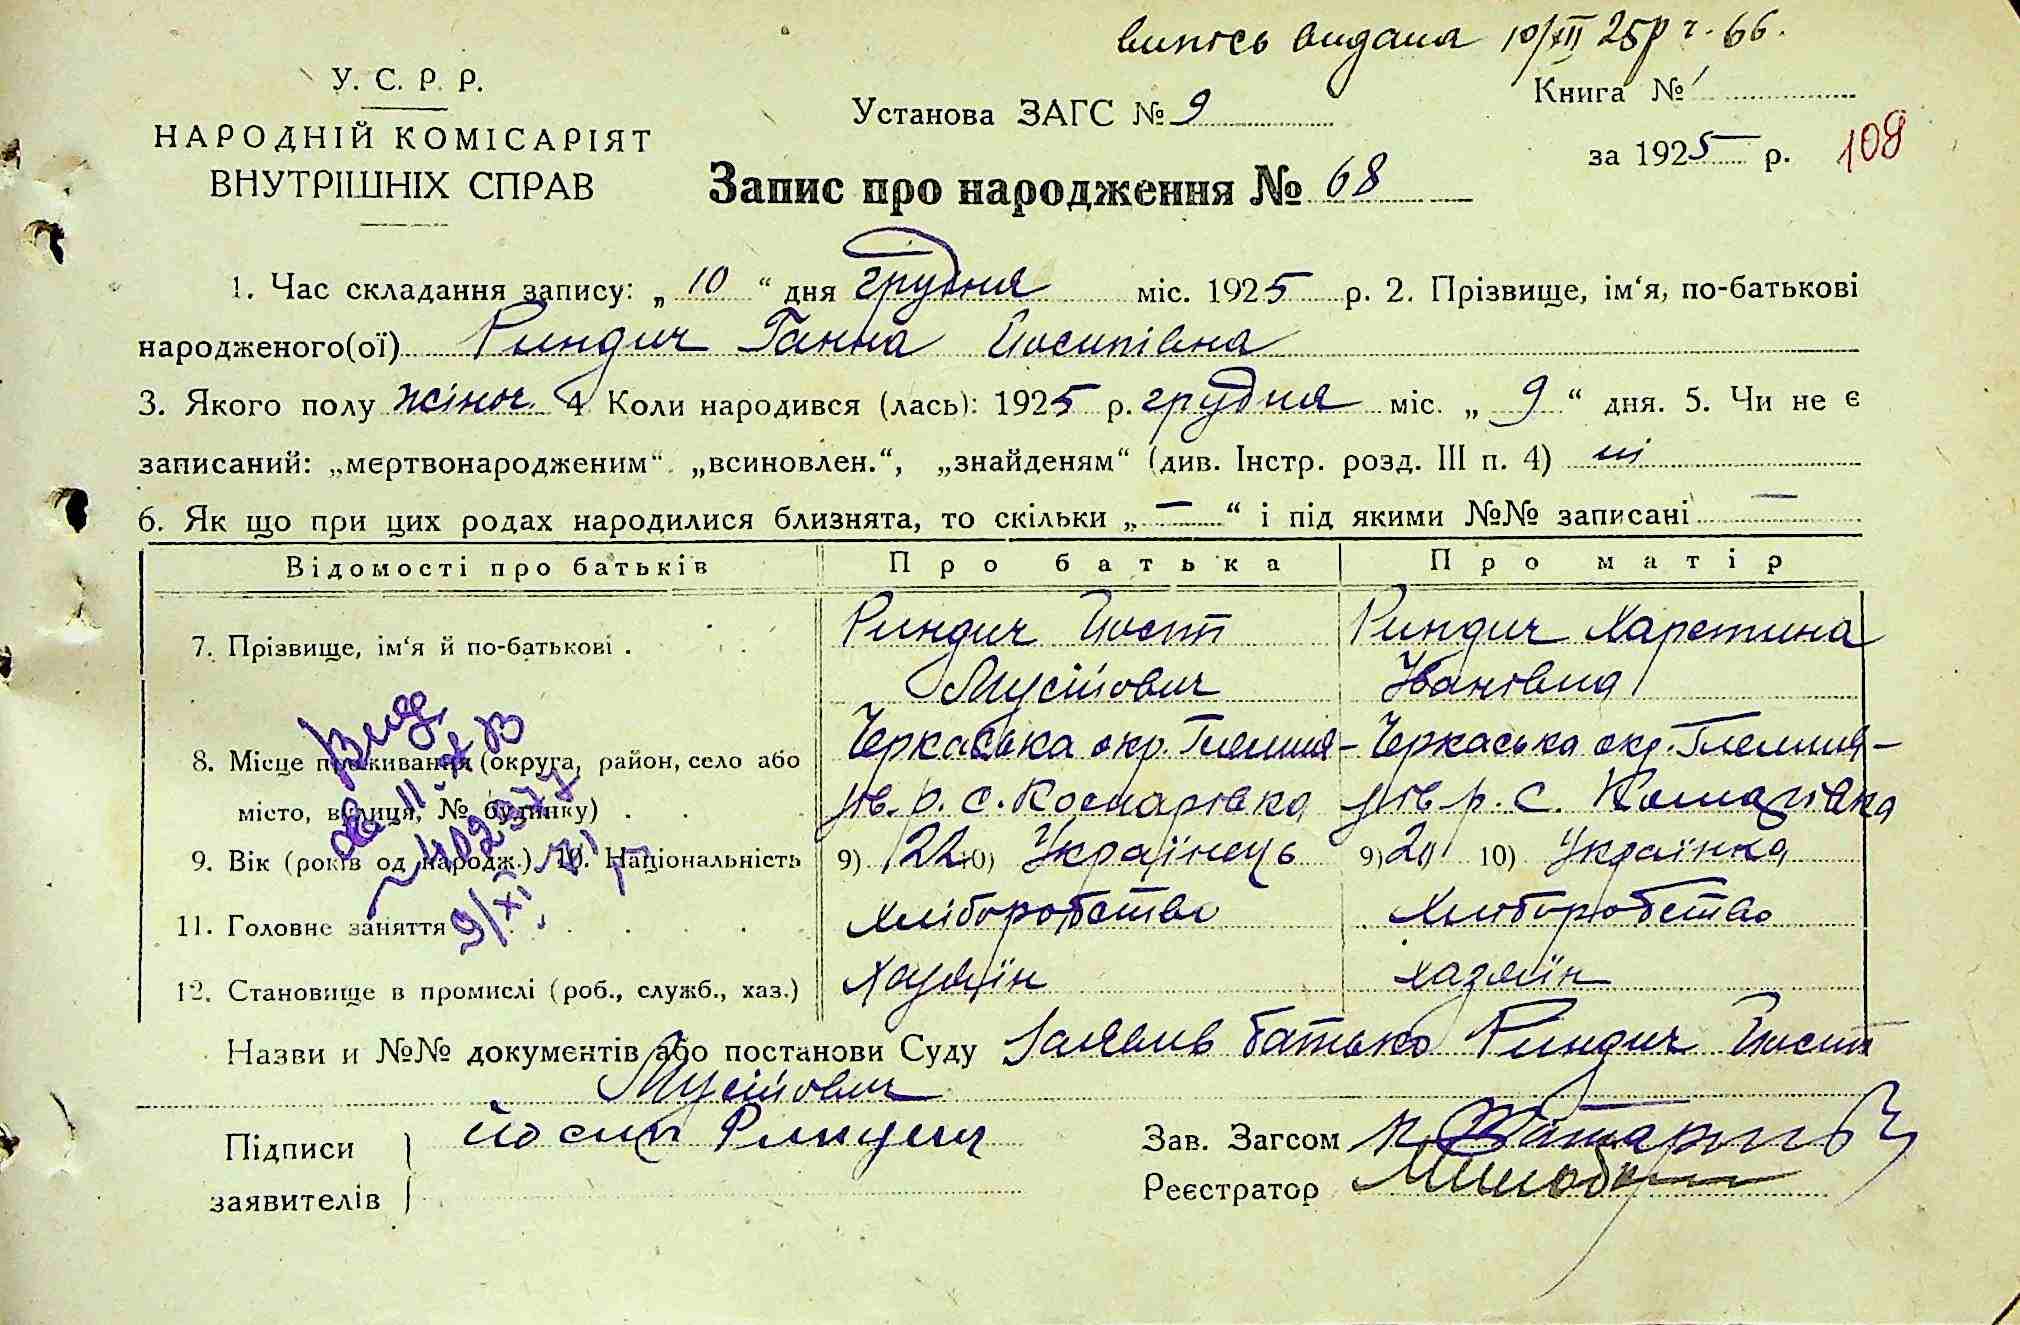 випись видана 10/XII 25р ч. 66.
У. С. Р. Р.
НАРОДНІЙ КОМІСАРІЯТ
ВНУТРІШНІХ СПРАВ
Установа ЗАГС № 9
Книга № 1
за 1925 р.
109
Запис про народження № 68
1. Час складання запису: „ 10 “ дня грудня міс. 1925 р. 2. Прізвище, ім‘я, по-батькові
народженого(ої) Риндич Ганна Йосипівна
3. Якого полу жіноч. 4 Коли народився (лась): 1925 р. грудня міс. „ 9 “ дня. 5. Чи не є
записаний: „мертвонародженим“. „всиновлен.“, „знайденям“ (див. Інстр. розд. III п. 4) ні
6. Як що при цих родах народилися близнята, то скільки „ — “ і під якими №№ записані —
Відомості про батьків Про батька Про матір
7. Прізвище, ім‘я й по-батькові . Риндич Йосип Риндич Харетина
Мусійович Іванівна
8. Місце проживання (округа, район, село або Черкаська окр. Черкаська окр.
місто, вулиця, № будинку) . р. с. Косарівка р. с.
9. Вік (років од народж.) 10. Національність 9) 22 10) Українець 9) 20 10) Українка
11. Головне заняття хліборобство хліборобство
12. Становище в промислі (роб., служб., хаз.) хазяїн хазяїн
Вид.
9/XI
Назви и №№ документів або постанови Суду Заявив батько Риндич Йосип
Мусійович
Підписи Йосип Риндич
заявителів
Зав. Загсом
Реєстратор